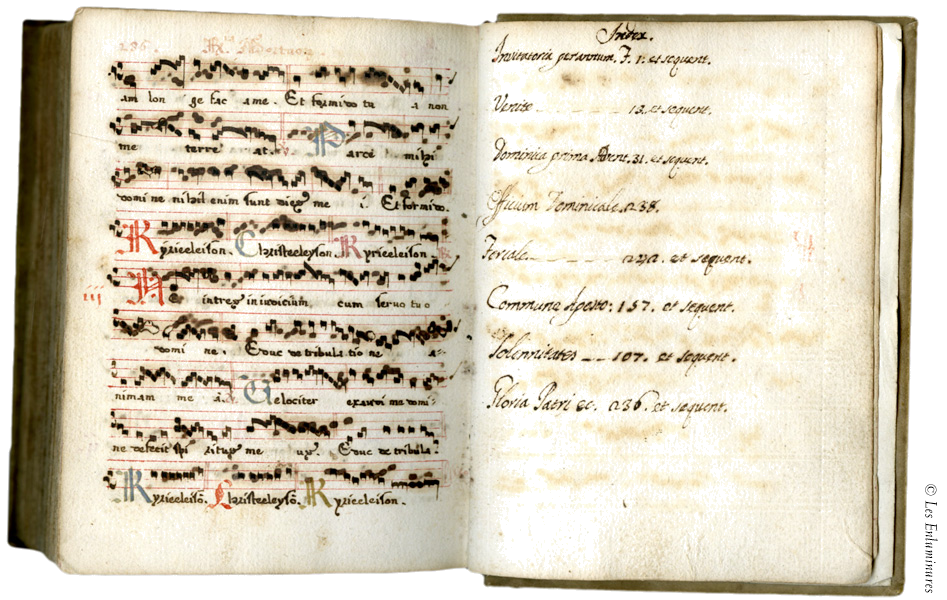 236.
am lon ge fac a me. Et formido tu a non
me terre at. Parce mihi
domine nihil enim sunt dies me i. Et formido.
Kyrieeleison. Christeeleyson Kyrieeleison.
iij Ne intres in iudicium cum servo tuo
domi ne. Educ de tribula tio ne a-
nimam me a. Velociter exaudi me domi-
ne defecit spi ritus me us. Educ de tribula.
Kyrieeleisō. Christeeleysō. Kyrieeleison.
Index.
Invitatoria per annum. F. 1. et sequent.
Venite 13. et sequent.
Dominica prima Advent. 31. et sequent.
Officium Dominicale. 238.
Feriale 242. et sequent.
Commune Aposto: 157. et sequent.
Solennitates 107. et sequent.
Gloria Patri &c. 236. et sequent.
© Les Enluminures